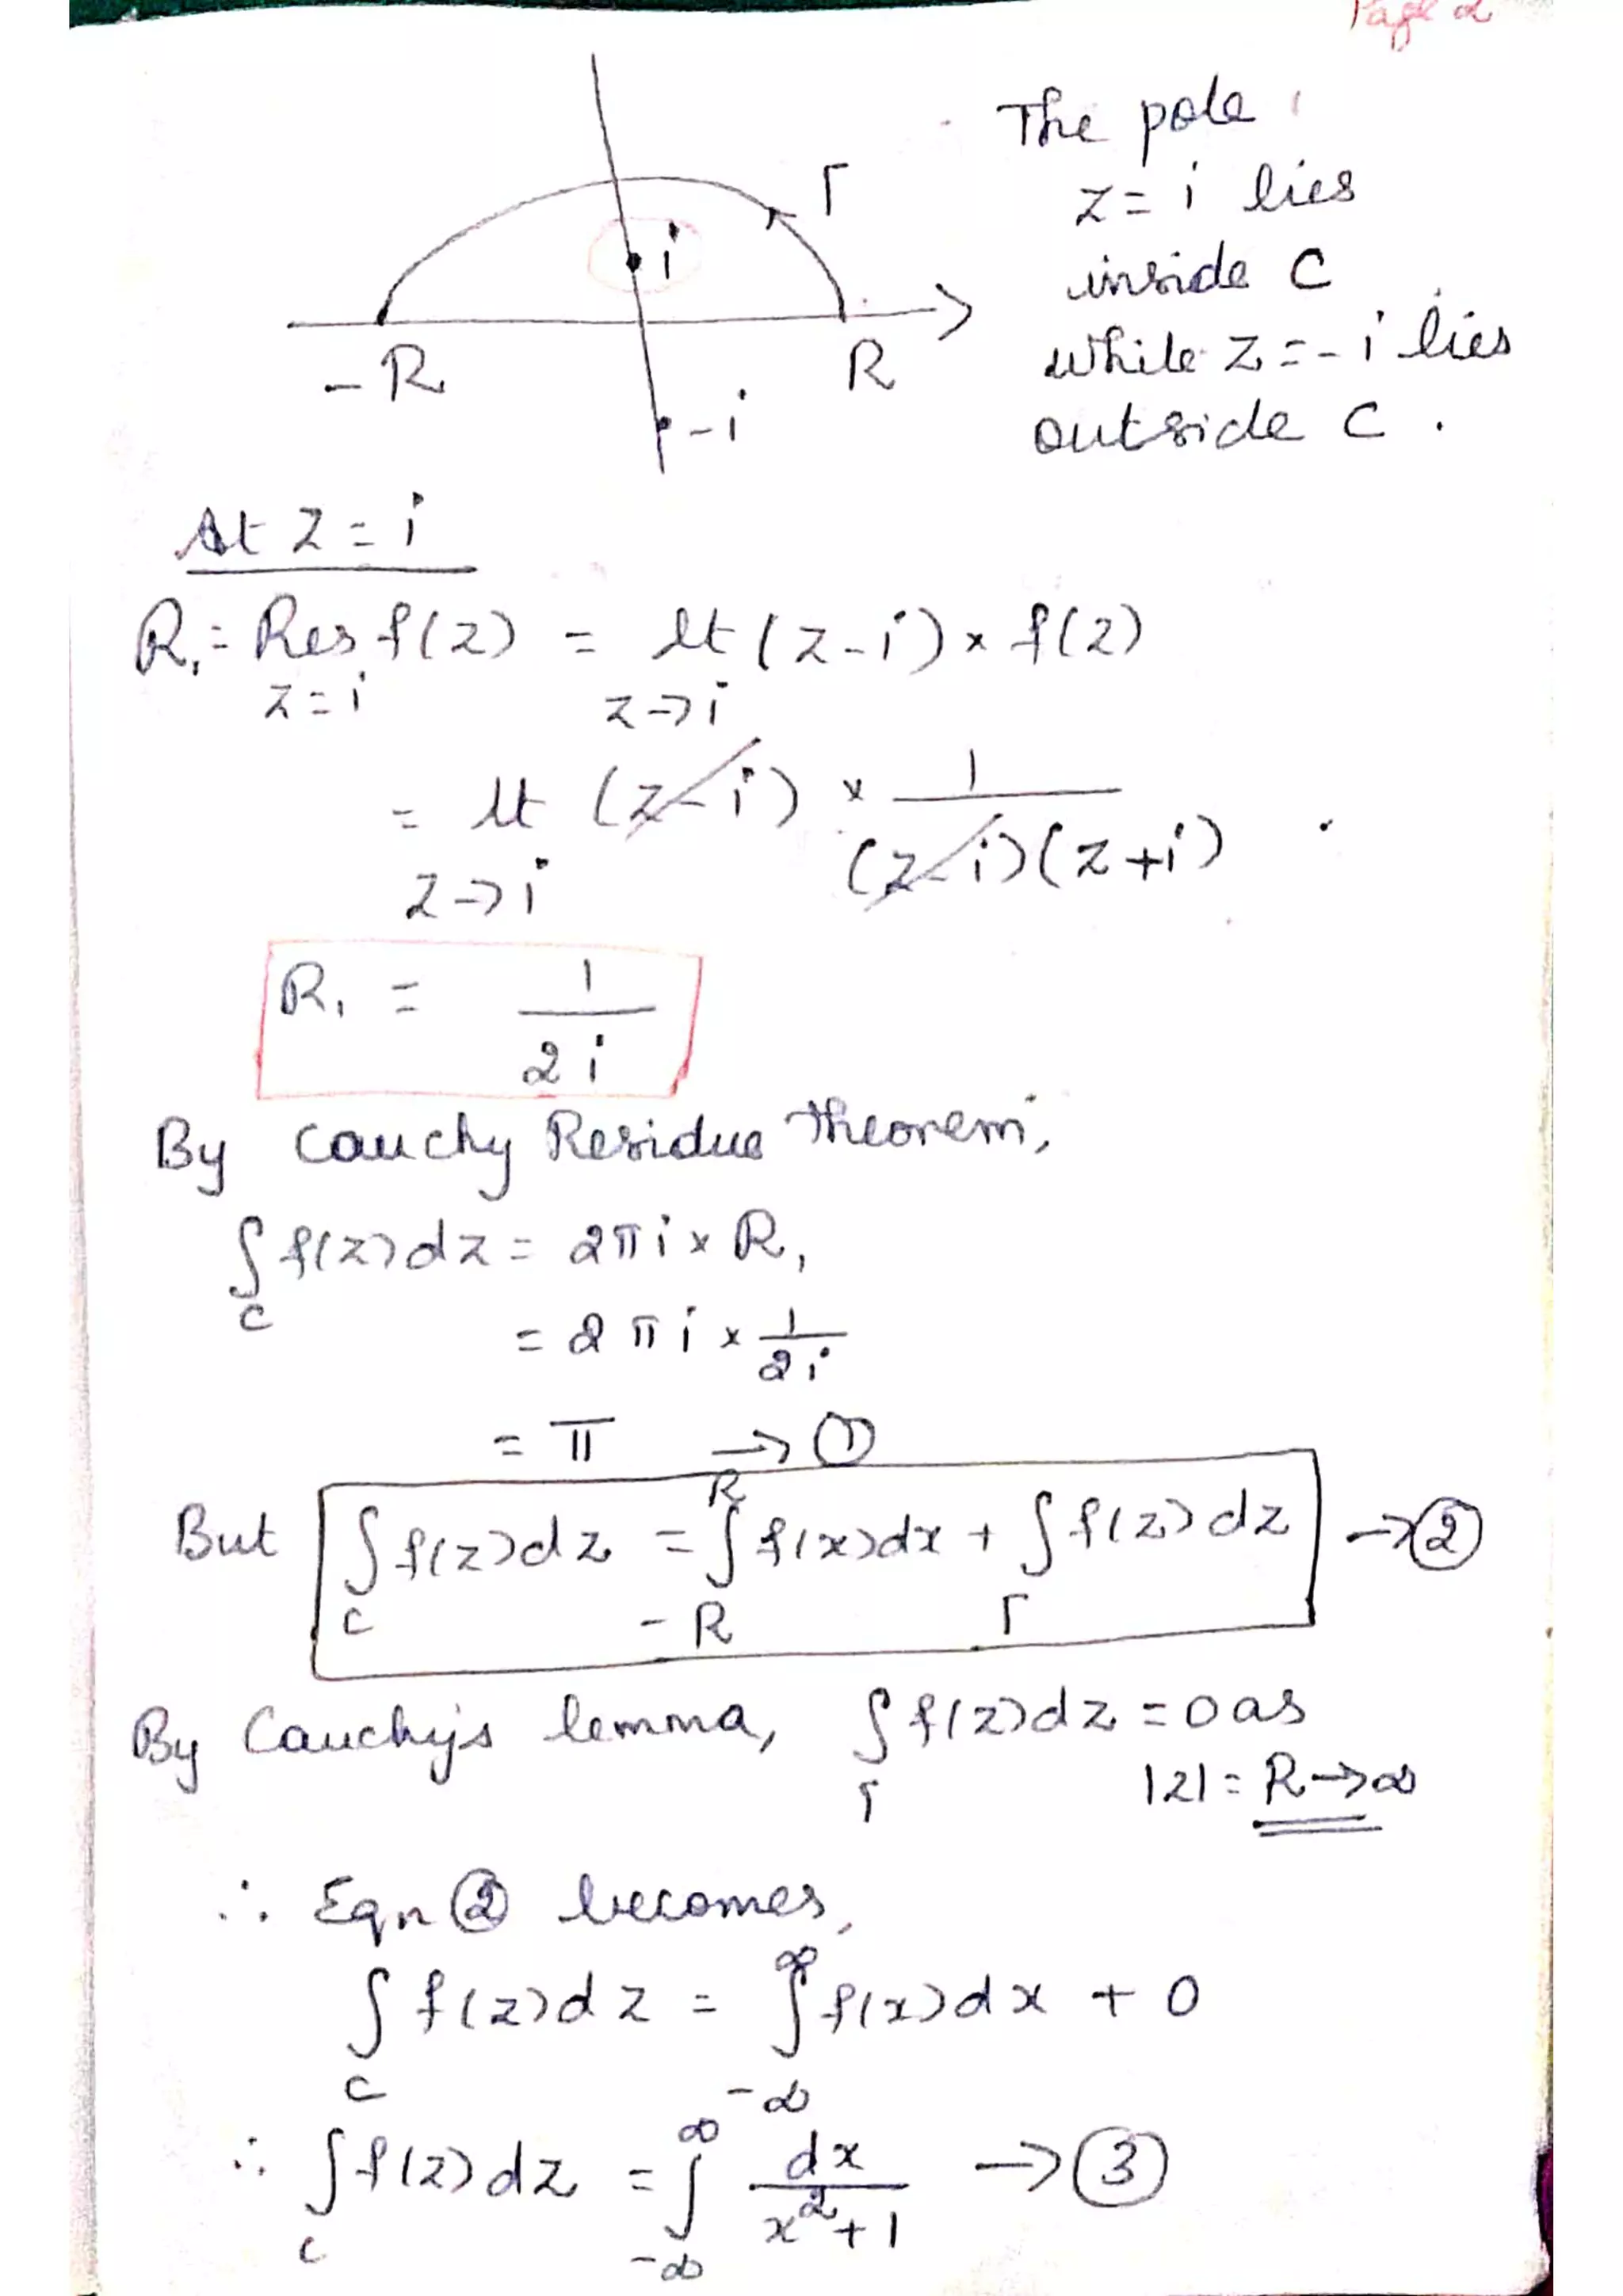 Page 2
The pole
z = i lies
inside C
while z = -i lies
outside C.
Γ
i
-R
R
-i
At z = i
R₁ = Res f(z) = lt (z-i) × f(z)
z=i z→i
= lt (z-i) × 1/((z-i)(z+i))
z→i
R₁ = 1/(2i)
By Cauchy Residue Theorem,
∫_C f(z)dz = 2πi × R₁
= 2πi × 1/(2i)
= π → ①
But ∫_C f(z)dz = ∫_{-R}^{R} f(x)dx + ∫_Γ f(z)dz → ②
By Cauchy's lemma, ∫_Γ f(z)dz = 0 as
|z| = R→∞
∴ Eqn ② becomes,
∫_C f(z)dz = ∫_{-∞}^{∞} f(x)dx + 0
∴ ∫_C f(z)dz = ∫_{-∞}^{∞} dx/(x²+1) → ③